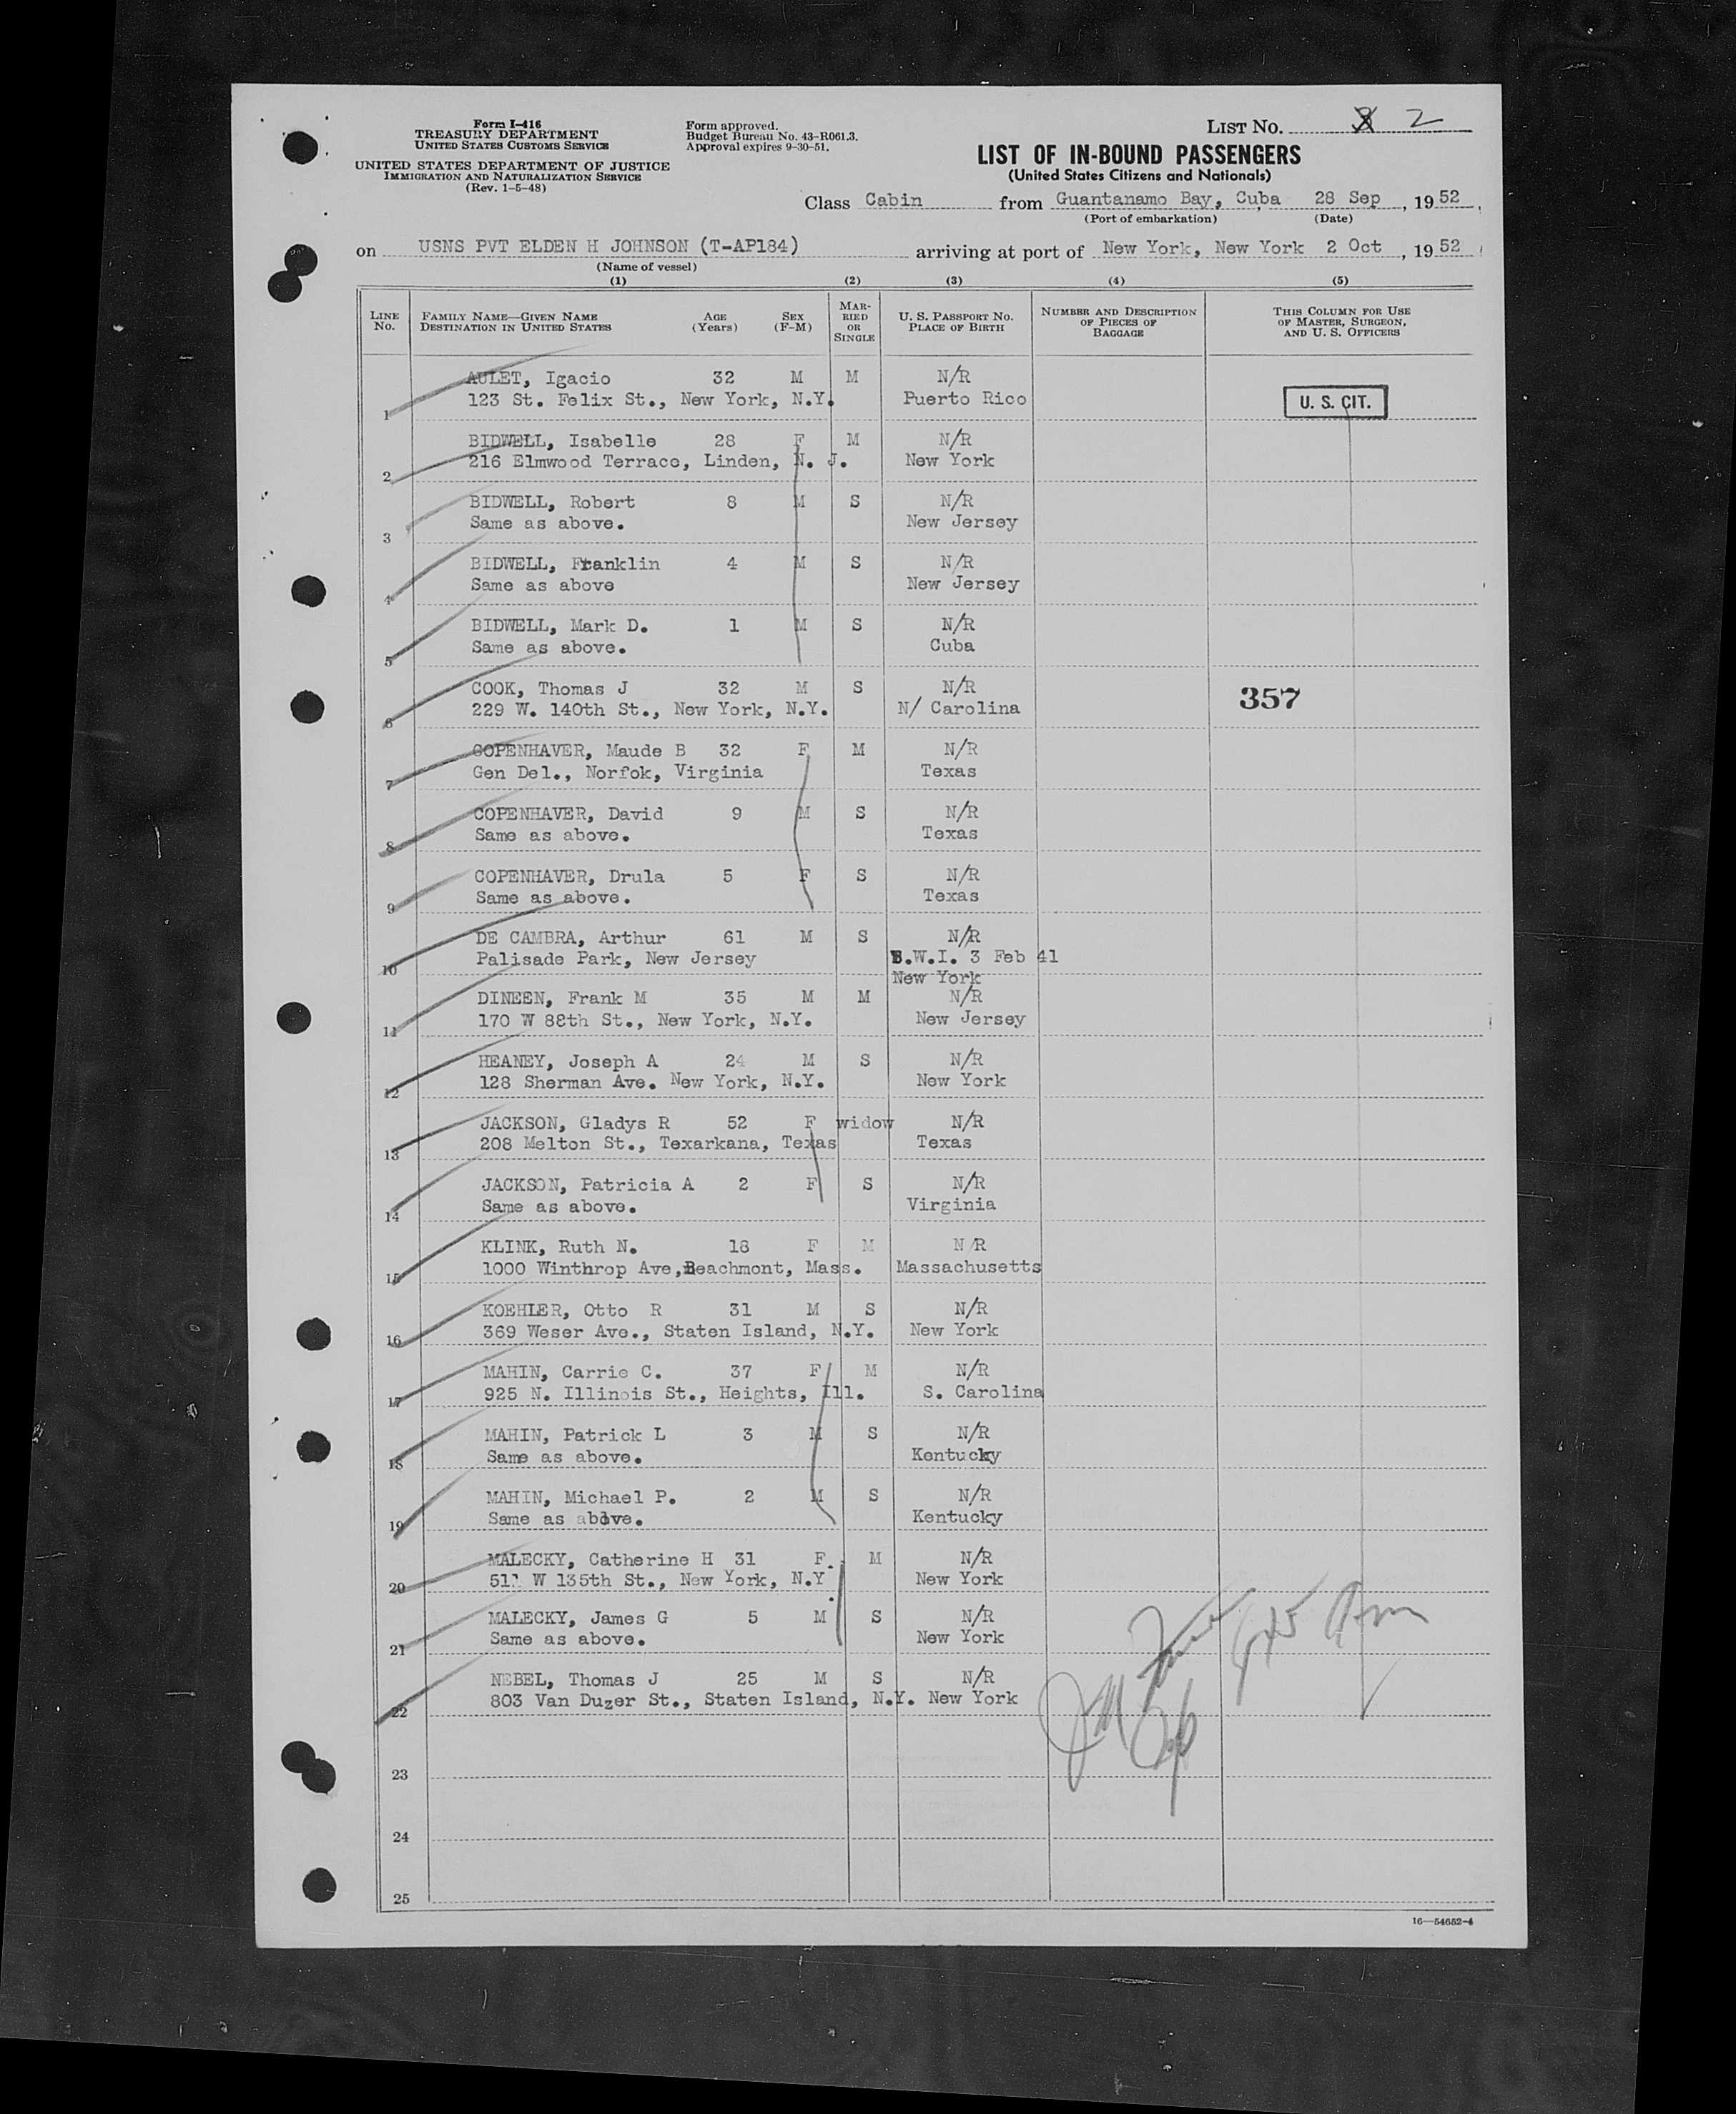 Form I-416
TREASURY DEPARTMENT
UNITED STATES CUSTOMS SERVICE
UNITED STATES DEPARTMENT OF JUSTICE
IMMIGRATION AND NATURALIZATION SERVICE
(Rev. 1-5-48)
Form approved.
Budget Bureau No. 43-R061.3.
Approval expires 9-30-51.
LIST NO. 2
LIST OF IN-BOUND PASSENGERS
(United States Citizens and Nationals)
Class Cabin from Guantanamo Bay, Cuba 28 Sep, 1952,
(Port of embarkation) (Date)
on USNS PVT ELDEN H JOHNSON (T-AP184) arriving at port of New York, New York 2 Oct, 1952
(Name of vessel)
(1) (2) (3) (4) (5)
LINE NO. FAMILY NAME—GIVEN NAME DESTINATION IN UNITED STATES AGE (Years) SEX (F-M) MARRIED OR SINGLE U. S. PASSPORT NO. PLACE OF BIRTH NUMBER AND DESCRIPTION OF PIECES OF BAGGAGE THIS COLUMN FOR USE OF MASTER, SURGEON, AND U. S. OFFICERS
AULET, Igacio 32 M M N/R
1 123 St. Felix St., New York, N.Y. Puerto Rico U. S. CIT.
BIDWELL, Isabelle 28 F M N/R
2 216 Elmwood Terrace, Linden, N. J. New York
BIDWELL, Robert 8 M S N/R
3 Same as above. New Jersey
BIDWELL, Franklin 4 M S N/R
4 Same as above New Jersey
BIDWELL, Mark D. 1 M S N/R
5 Same as above. Cuba
COOK, Thomas J 32 M S N/R
6 229 W. 140th St., New York, N.Y. N/ Carolina 357
COPENHAVER, Maude B 32 F M N/R
7 Gen Del., Norfok, Virginia Texas
COPENHAVER, David 9 M S N/R
8 Same as above. Texas
COPENHAVER, Drula 5 F S N/R
9 Same as above. Texas
DE CAMBRA, Arthur 61 M S N/R
10 Palisade Park, New Jersey B.W.I. 3 Feb 41
New York
DINEEN, Frank M 35 M M N/R
11 170 W 88th St., New York, N.Y. New Jersey
HEANEY, Joseph A 24 M S N/R
12 128 Sherman Ave. New York, N.Y. New York
JACKSON, Gladys R 52 F widow N/R
13 208 Melton St., Texarkana, Texas Texas
JACKSON, Patricia A 2 F S N/R
14 Same as above. Virginia
KLINK, Ruth N. 18 F M N/R
15 1000 Winthrop Ave, Beachmont, Mass. Massachusetts
KOEHLER, Otto R 31 M S N/R
16 369 Weser Ave., Staten Island, N.Y. New York
MAHIN, Carrie C. 37 F M N/R
17 925 N. Illinois St., Heights, Ill. S. Carolina
MAHIN, Patrick L 3 M S N/R
18 Same as above. Kentucky
MAHIN, Michael P. 2 M S N/R
19 Same as above. Kentucky
MALECKY, Catherine H 31 F. M N/R
20 511 W 135th St., New York, N.Y. New York
MALECKY, James G 5 M S N/R
21 Same as above. New York
NEBEL, Thomas J 25 M S N/R
22 803 Van Duzer St., Staten Island, N.Y. New York
23
24
25
16—54652-4